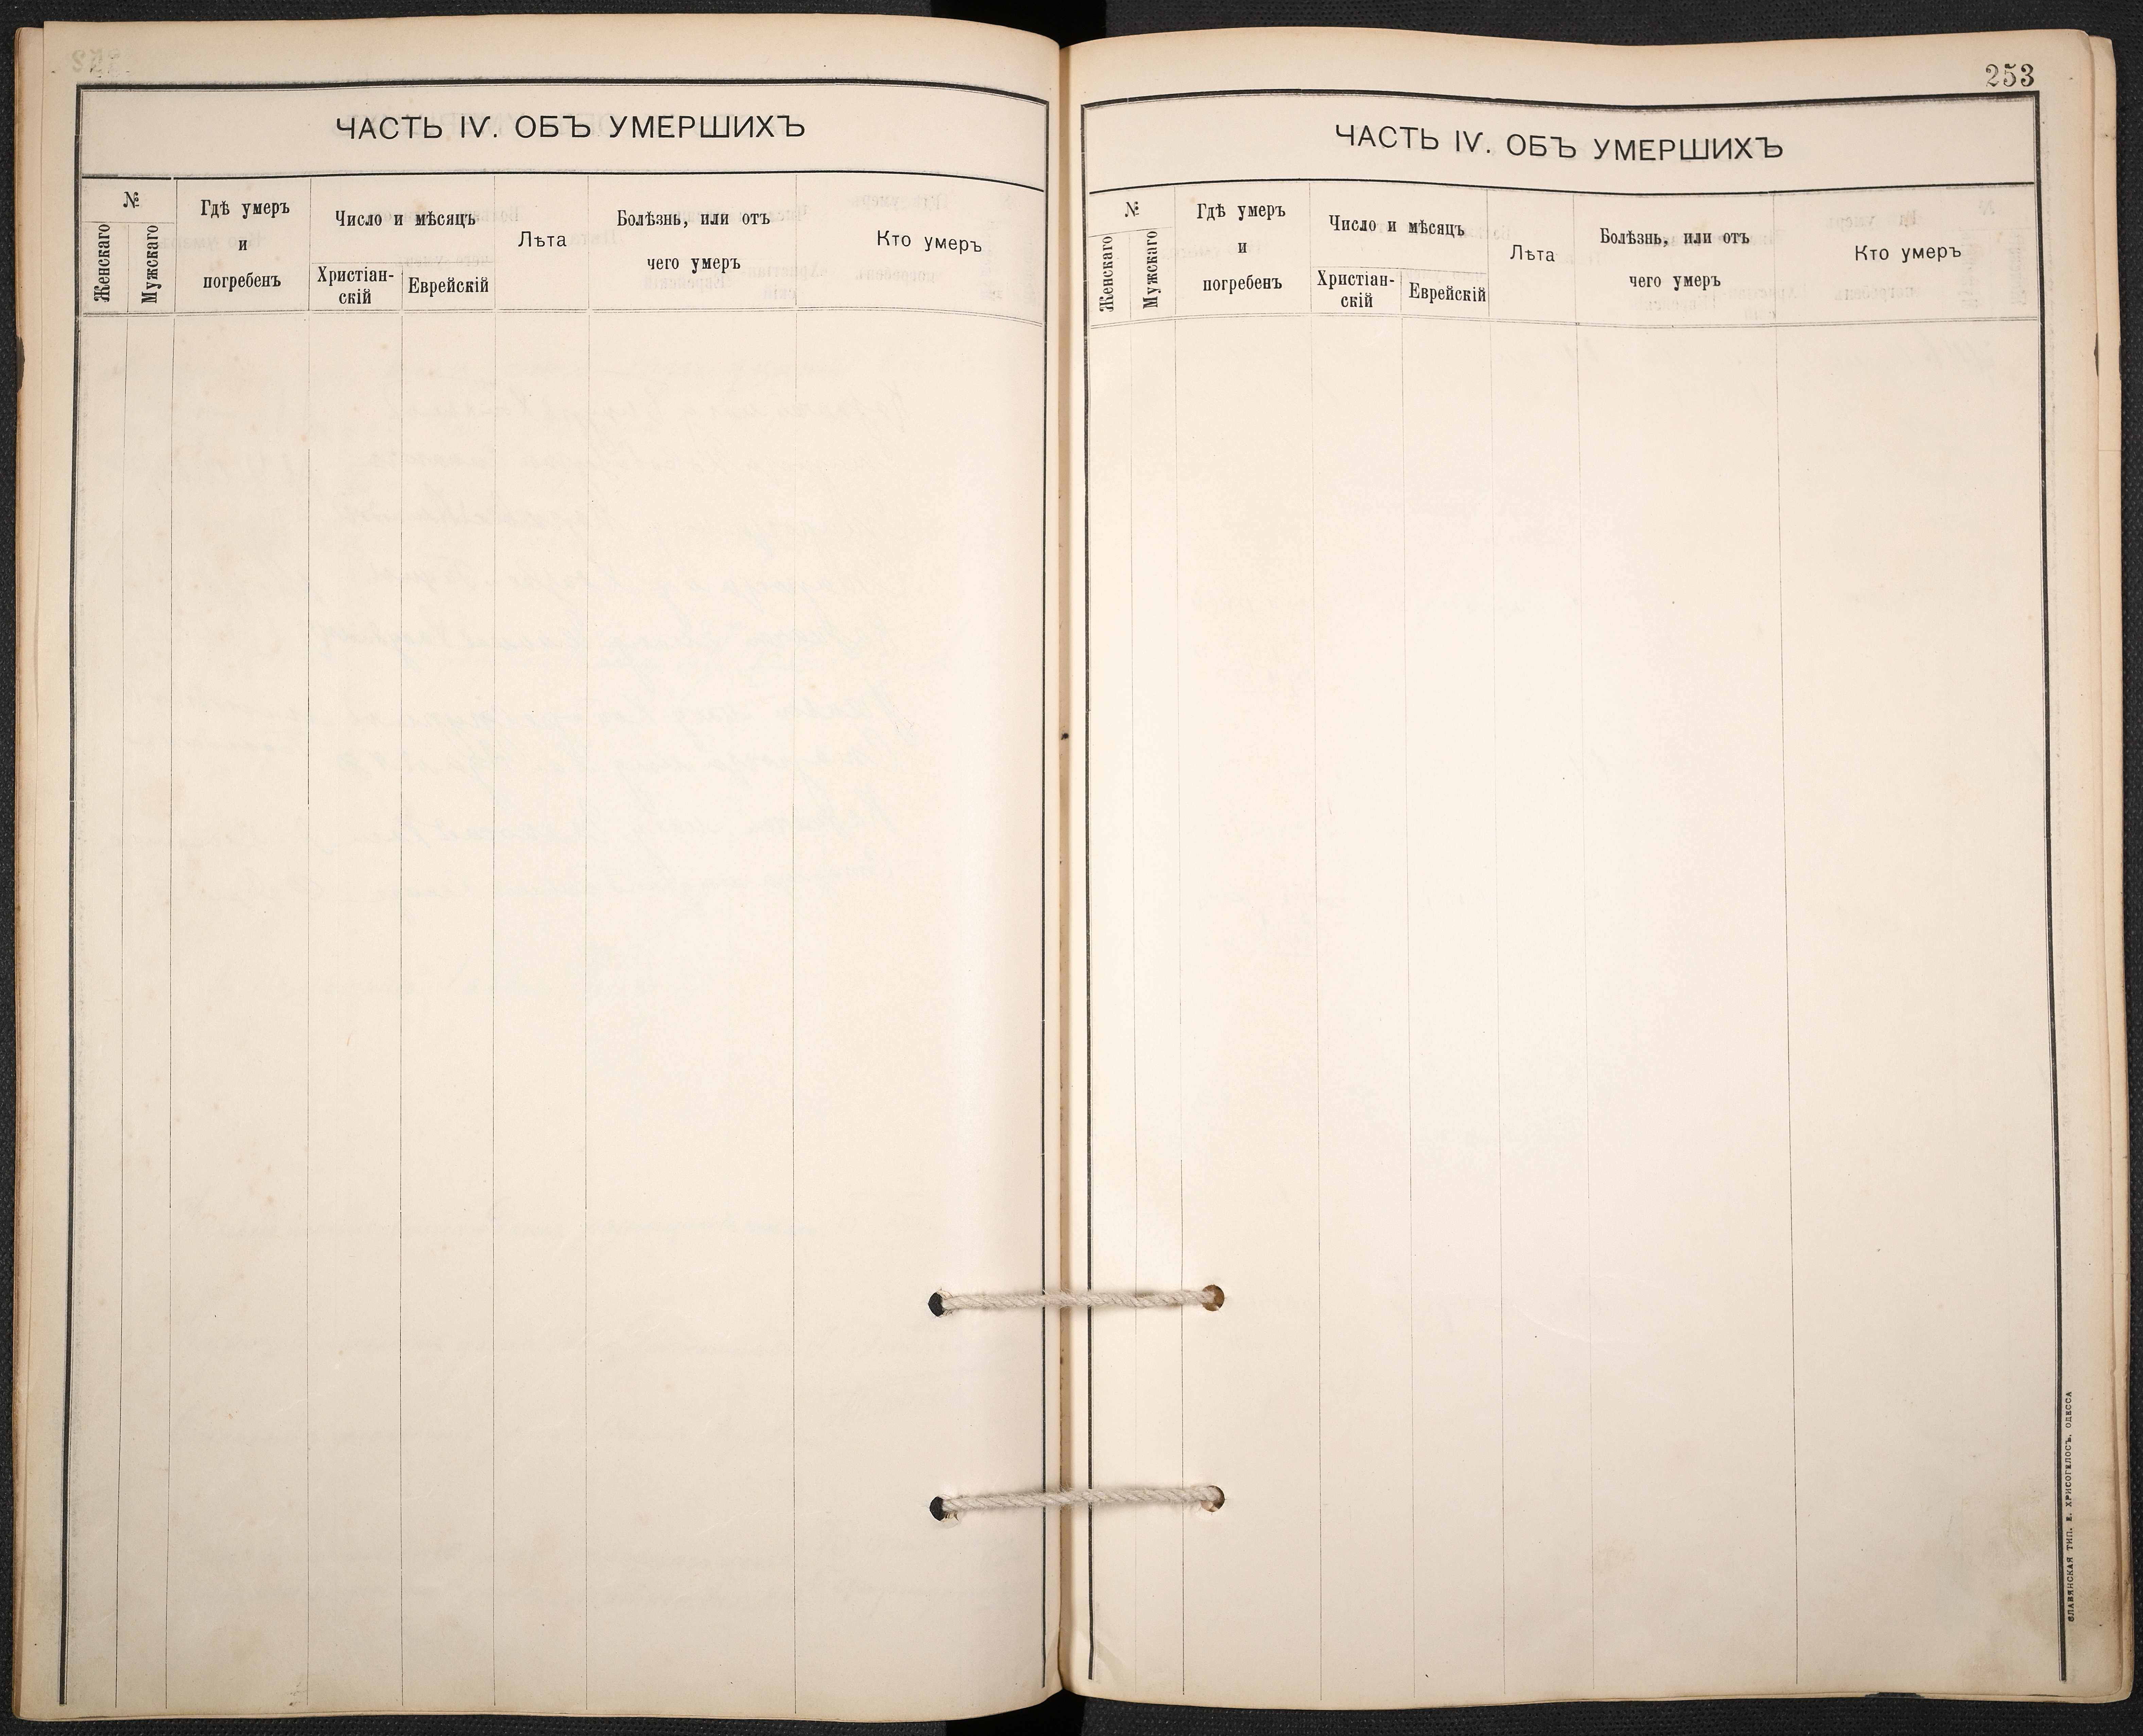 ЧАСТЬ IV. ОБЪ УМЕРШИХЪ
№
Женскаго
Мужскаго
Гдѣ умеръ
и
погребенъ
Число и мѣсяцъ
Христіан-
скій
Еврейскій
Лѣта
Болѣзнь, или отъ
чего умеръ
Кто умеръ
253
ЧАСТЬ IV. ОБЪ УМЕРШИХЪ
№
Женскаго
Мужскаго
Гдѣ умеръ
и
погребенъ
Число и мѣсяцъ
Христіан-
скій
Еврейскій
Лѣта
Болѣзнь, или отъ
чего умеръ
Кто умеръ
СЛАВЯНСКАЯ ТИП. Е. ХРИСОГЕЛОСЪ, ОДЕССА